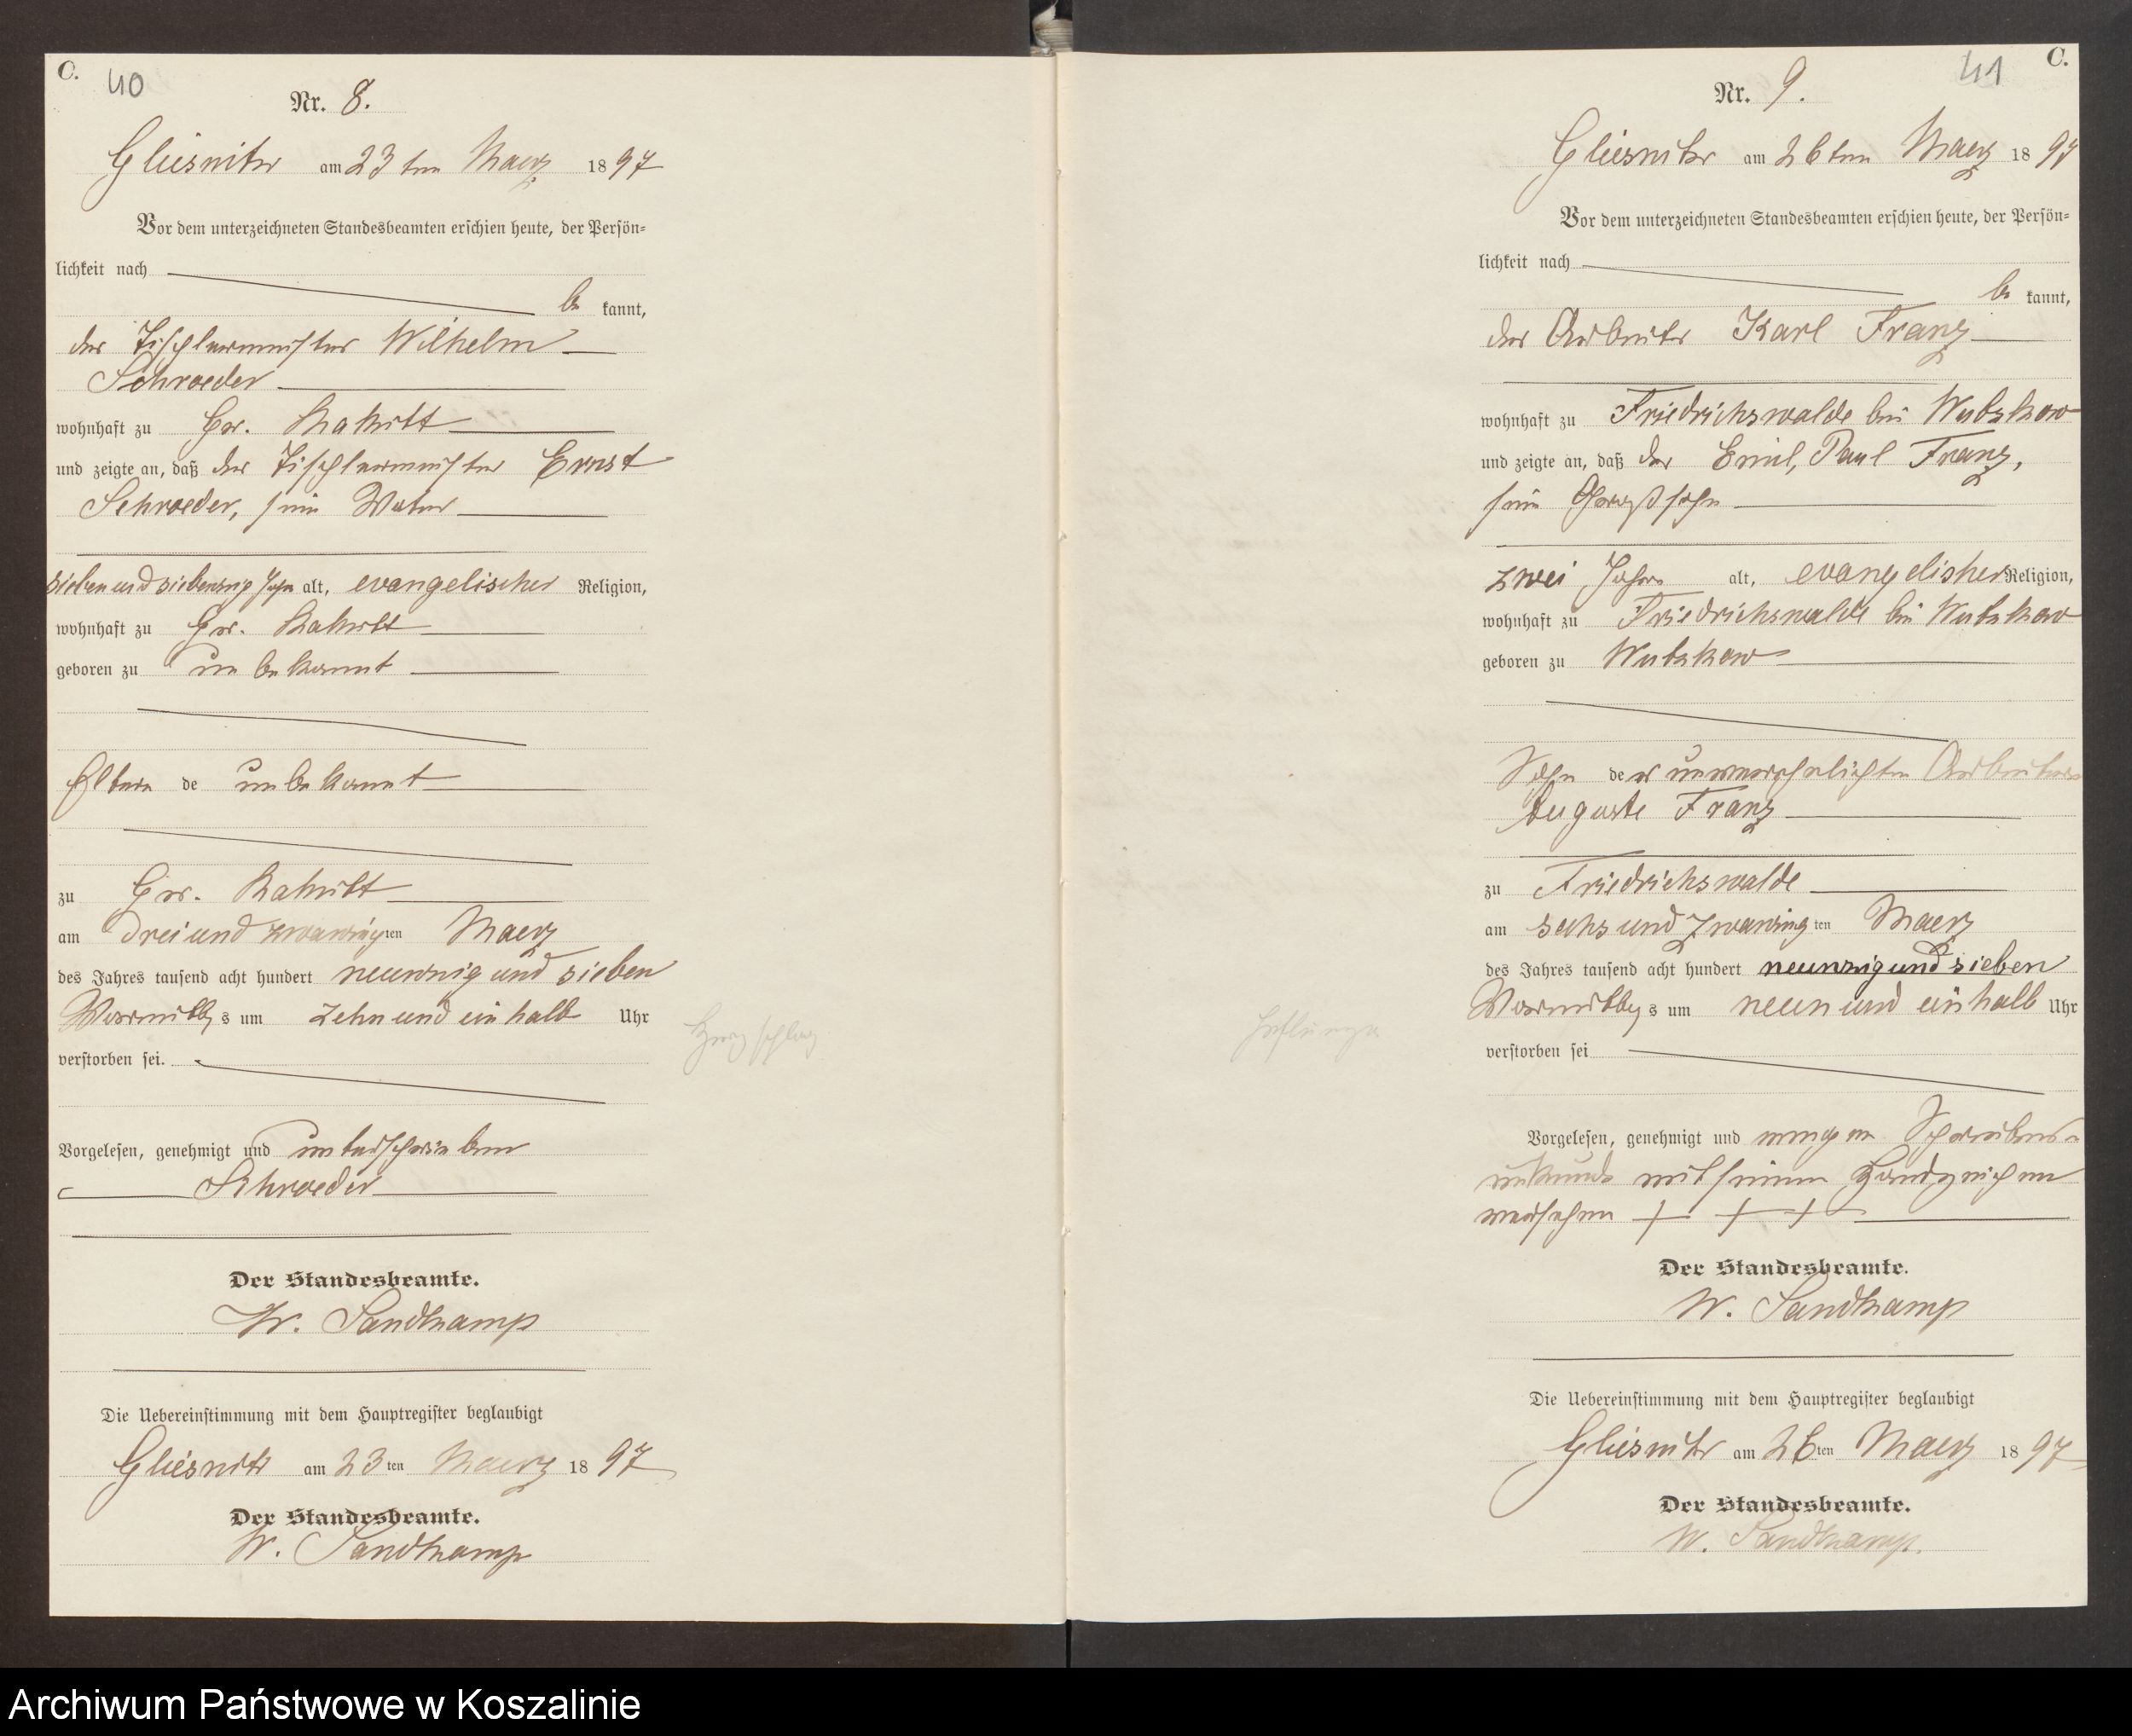 C. 40
Nr. 8.
Gliesnitz am 23ten Maerz 1897
Vor dem unterzeichneten Standesbeamten erschien heute, der Persön-
lichkeit nach
be kannt,
der Tischlermeister Wilhelm
Schroeder
wohnhaft zu Gr. Rakitt
und zeigte an, daß der Tischlermeister Ernst
Schroeder, sein Vater
sieben und siebenzig Jahr alt, evangelischer Religion,
wohnhaft zu Gr. Rakitt
geboren zu unbekannt
Eltern de unbekannt
zu Gr. Rakitt
am drei und zwanzigten Maerz
des Jahres tausend acht hundert neunzig und sieben
Vormittags um zehn und ein halb Uhr
verstorben sei.
Herzschlag
Vorgelesen, genehmigt und unterschrieben
Schroeder
Der Standesbeamte.
W. Sandkamp
Die Uebereinstimmung mit dem Hauptregister beglaubigt
Gliesnitz am 23ten Maerz 1897
Der Standesbeamte.
W. Sandkamp
41 C.
Nr. 9.
Gliesnitz am 26ten Maerz 1897
Vor dem unterzeichneten Standesbeamten erschien heute, der Persön-
lichkeit nach
be kannt,
der Arbeiter Karl Franz
wohnhaft zu Friedrichswalde bei Wutzkow
und zeigte an, daß der Emil, Paul Franz,
sein Großsohn
zwei Jahre alt, evangelisher Religion,
wohnhaft zu Friedrichswalde bei Wutzkow
geboren zu Wutzkow
Sohn der unverehelichten Arbeiterin
Auguste Franz
zu Friedrichswalde
am sechs und zwanzingten Maerz
des Jahres tausend acht hundert neunzig und sieben
Vormittags um neun und ein halb Uhr
verstorben sei
Vorgelesen, genehmigt und wegen Schreibens-
unkunde mit seinem Handzeichen
versehen + + +
Der Standesbeamte.
W. Sandkamp
Die Uebereinstimmung mit dem Hauptregister beglaubigt
Gliesnitz am 26ten Maerz 1897
Der Standesbeamte.
W. Sandkamp.
Archiwum Państwowe w Koszalinie